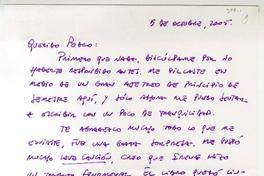 5 DE OCTUBRE, 2005.
QUERIDO PEDRO:
PRIMERO QUE NADA, DISCÚLPAME POR NO
HABERTE RESPONDIDO ANTES. ME PILLASTE EN
MEDIO DE UN GRAN AJETREO DE PRINCIPIO DE
SEMESTRE AQUÍ, Y SÓLO AHORA ME PUEDO SENTAR
A ESCRIBIR CON UN POCO DE TRANQUILIDAD.
TE AGRADEZCO MUCHO TODO LO QUE ME
ENVIASTE, FUE UNA GRATA SORPRESA. ME GUSTÓ
MUCHO CREO QUE HIZO
UN TRABAJO FENOMENAL. EL LIBRO QUEDÓ